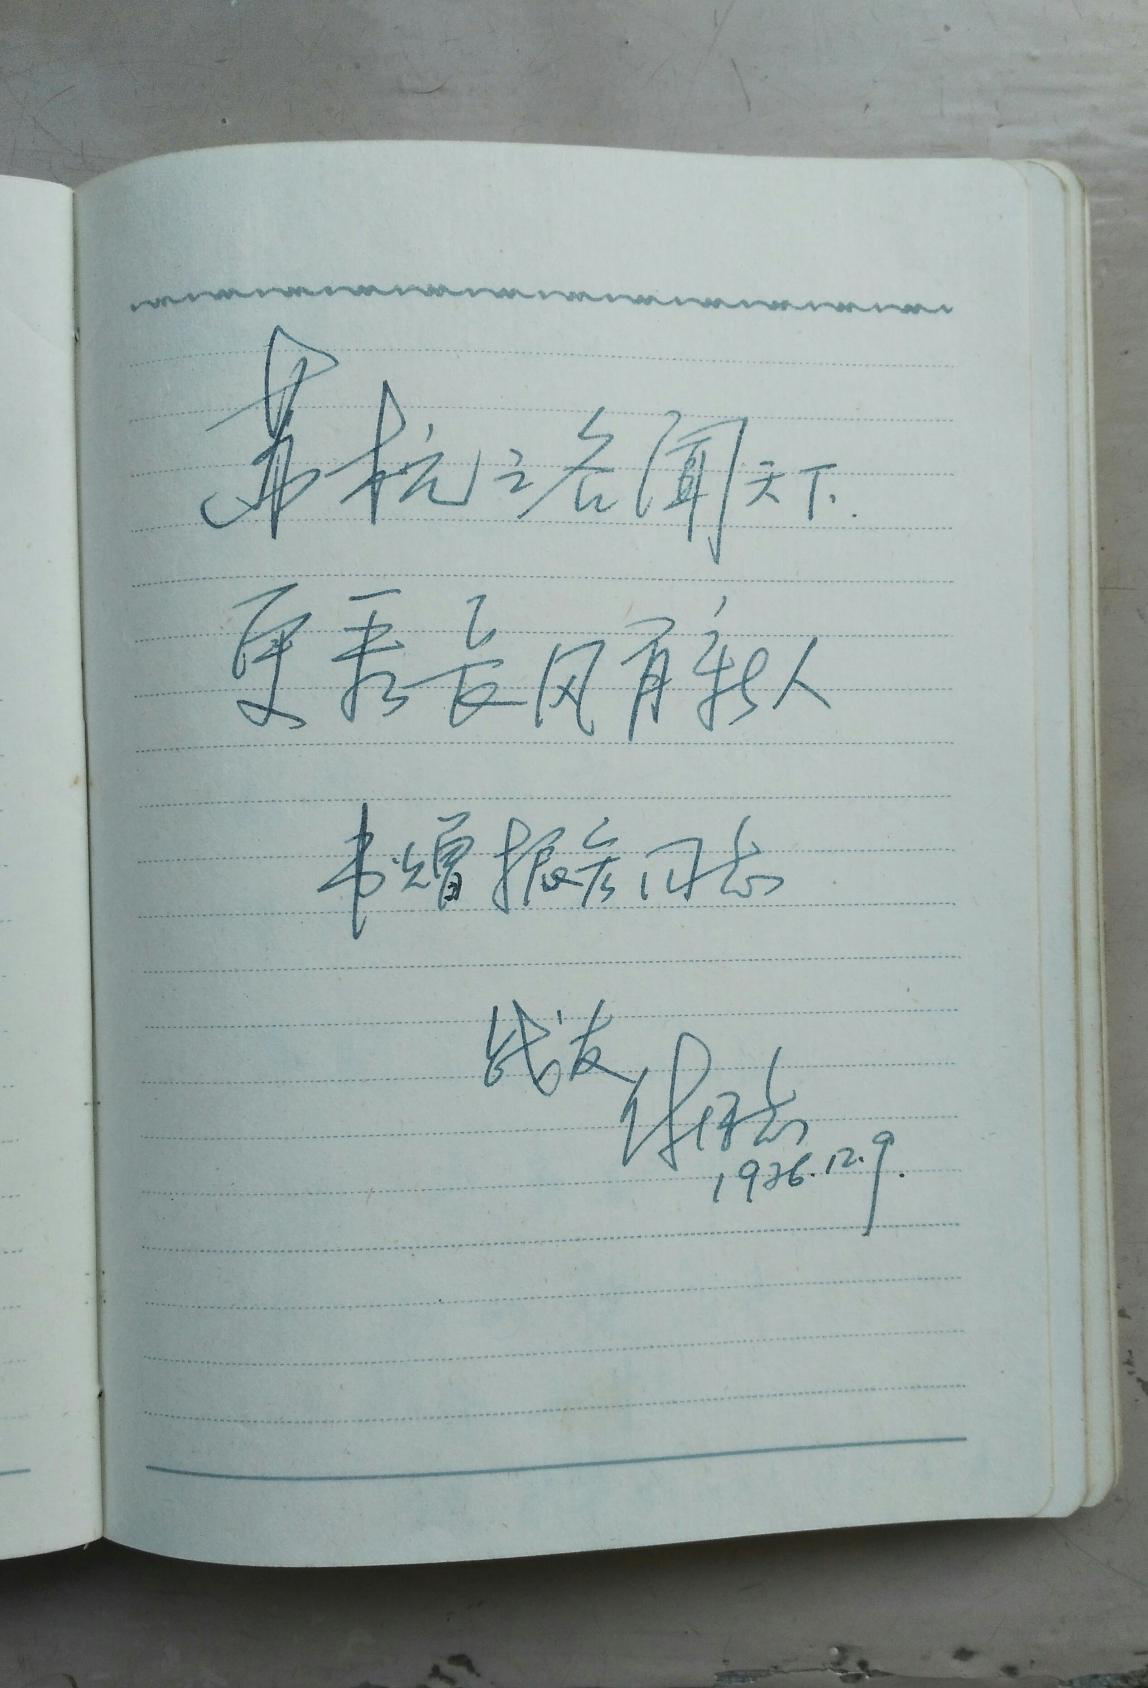 苏杭之名闻天下.
更喜长风有新人
书赠振宏同志
战友
1976.12.9.